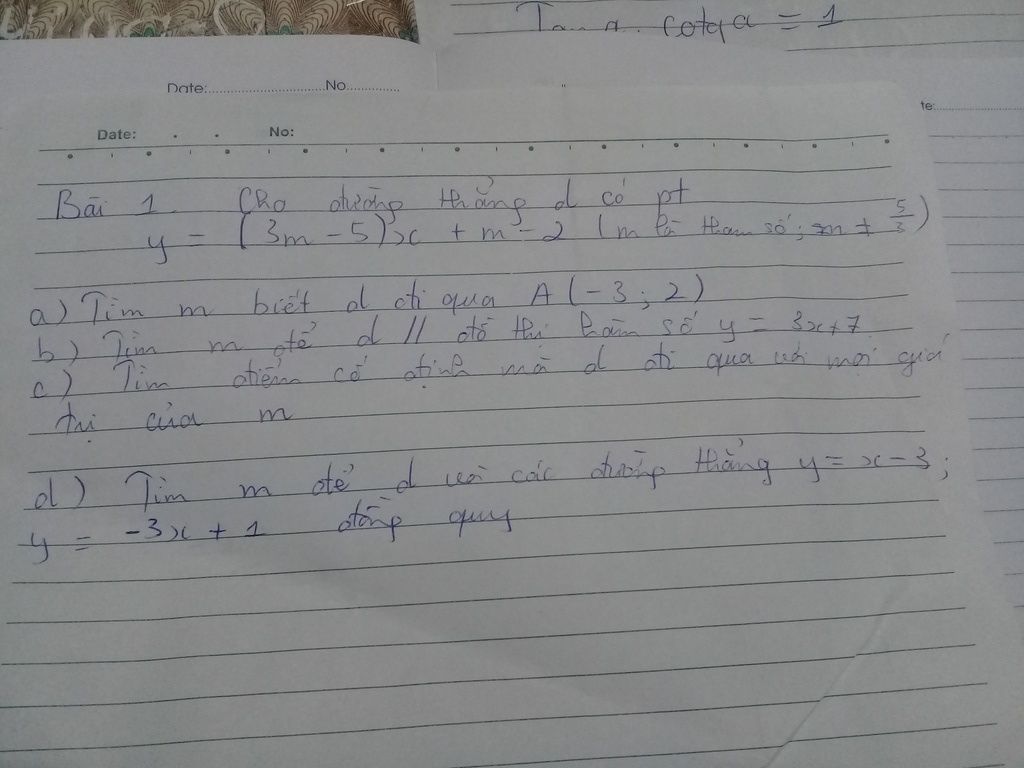 Tan a. cotga = 1
Date:..............................No..............
te:
Date: . . No:
Bài 1. Cho đường thẳng d có pt
y = (3m - 5)x + m - 2 (m là tham số; m ≠ 5/3)
a) Tìm m biết d đi qua A (-3; 2)
b) Tìm m để d // đồ thị hàm số y = 3x+7
c) Tìm điểm cố định mà d đi qua với mọi giá
trị của m
d) Tìm m để d và các đường thẳng y = x - 3;
y = -3x + 1 đồng quy